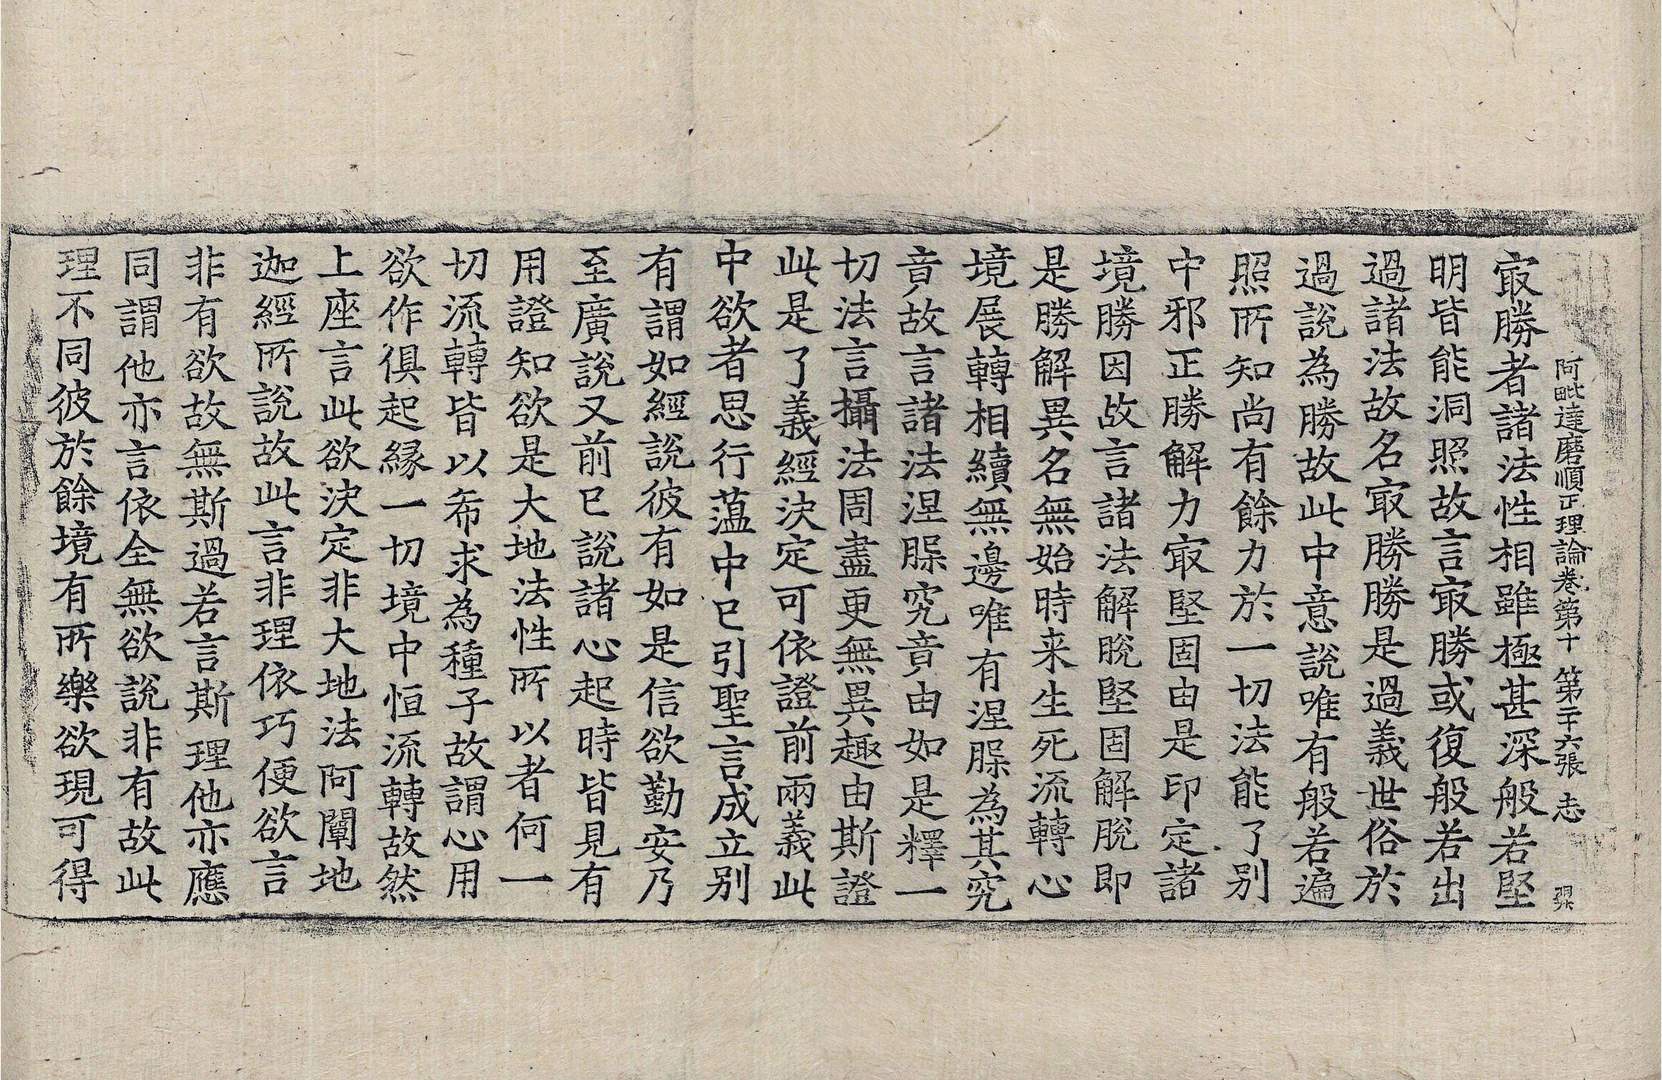 阿毗達磨順正理論卷第十 第二十六張 志
㝡勝者諸法性相雖極甚深般若堅
明皆能洞照故言㝡勝或復般若出
過諸法故名㝡勝勝是過義世俗於
過說為勝故此中意說唯有般若遍
照所知尚有餘力於一切法能了別
中邪正勝解力㝡堅固由是印定諸
境勝因故言諸法解脫堅固解脫即
是勝解異名無始時来生死流轉心
境展轉相續無邊唯有涅槃為其究
竟故言諸法涅槃究竟由如是釋一
切法言攝法周盡更無異趣由斯證
此是了義經決定可依證前兩義此
中欲者思行蘊中已引聖言成立別
有謂如經說彼有如是信欲勤安乃
至廣說又前已說諸心起時皆見有
用證知欲是大地法性所以者何一
切流轉皆以希求為種子故謂心用
欲作俱起緣一切境中恒流轉故然
上座言此欲決定非大地法阿闡地
迦經所說故此言非理依巧便欲言
非有欲故無斯過若言斯理他亦應
同謂他亦言依全無欲說非有故此
理不同彼於餘境有所樂欲現可得